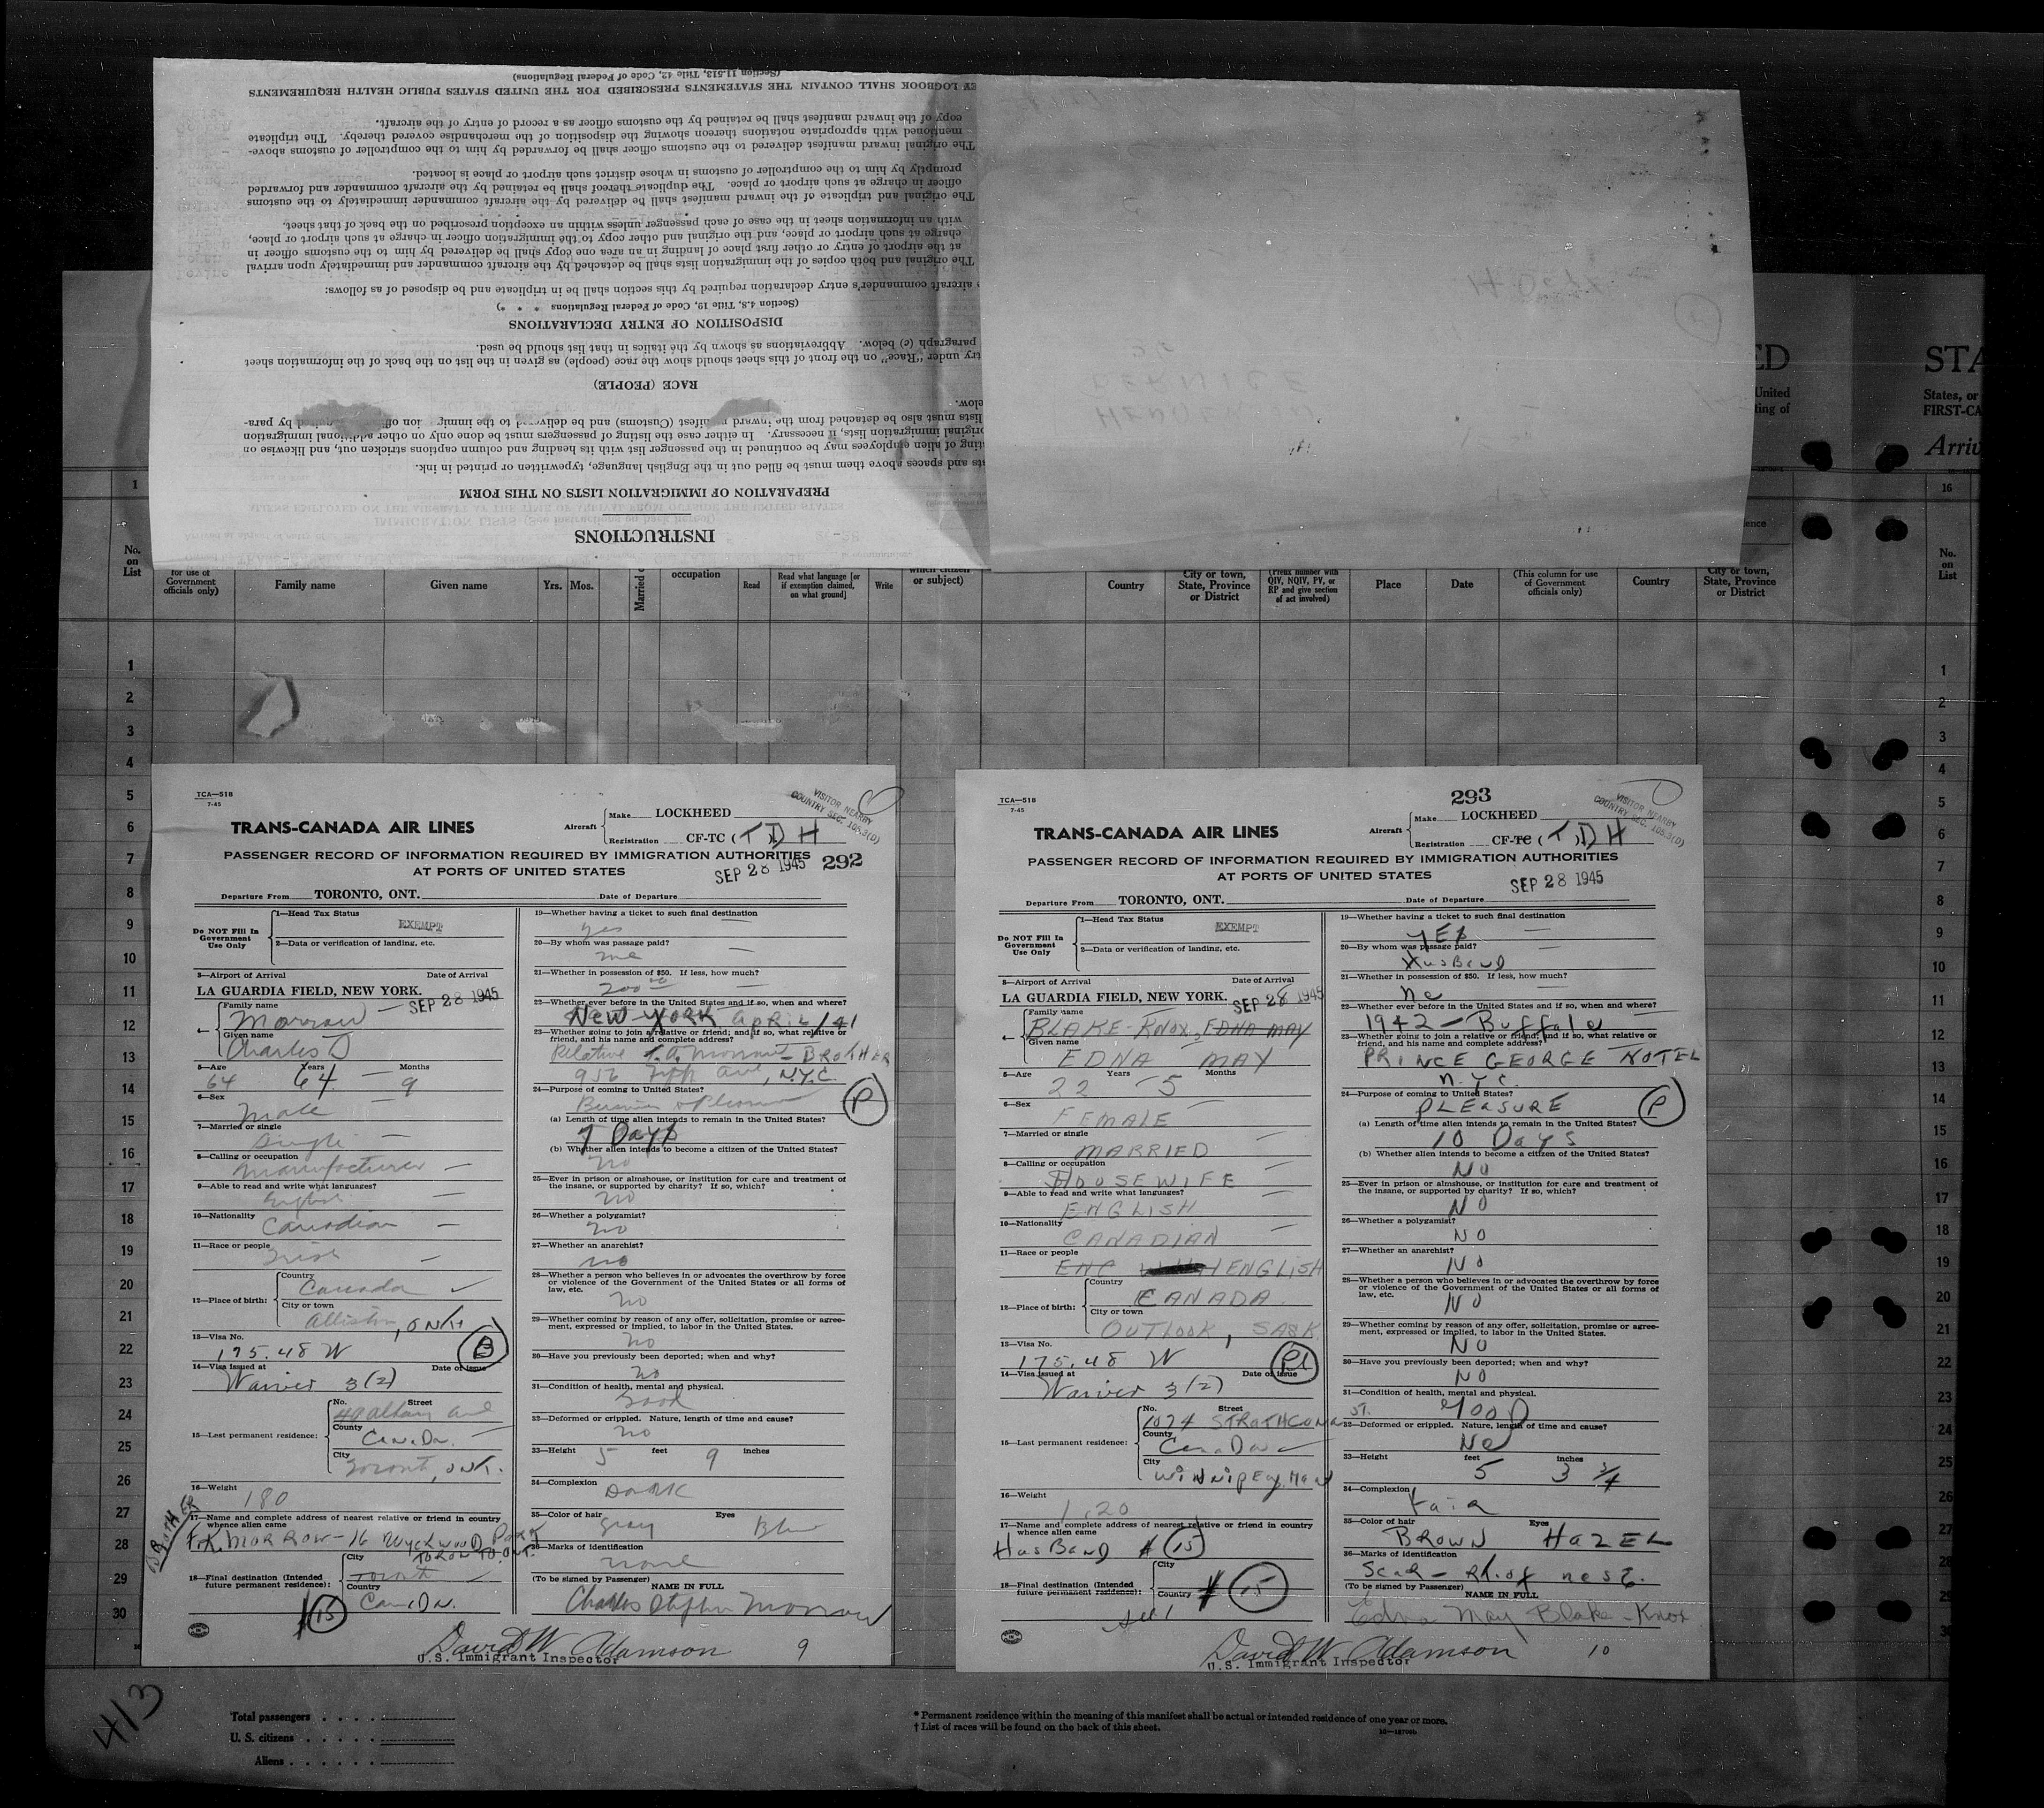 (Section 11.513, Title 42, Code of Federal Regulations)
LOGBOOK SHALL CONTAIN THE STATEMENTS PRESCRIBED FOR THE UNITED STATES PUBLIC HEALTH REQUIREMENTS
copy of the inward manifest shall be retained by the customs officer as a record of entry of the aircraft.
mentioned with appropriate notations thereon showing the disposition of the merchandise covered thereby. The triplicate
The original inward manifest delivered to the customs officer shall be forwarded by him to the comptroller of customs above-
promptly by him to the comptroller of customs in whose district such airport or place is located.
officer in charge at such airport or place. The duplicate thereof shall be retained by the aircraft commander and forwarded
The original and triplicate of the inward manifest shall be delivered by the aircraft commander immediately to the customs
with an information sheet in the case of each passenger unless within an exception prescribed on the back of that sheet.
charge at such airport or place, and the original and other copy to the immigration officer in charge at such airport or place,
at the airport of entry or other first place of landing in an area one copy shall be delivered by him to the customs officer in
The original and both copies of the immigration lists shall be detached by the aircraft commander and immediately upon arrival
aircraft commander's entry declaration required by this section shall be in triplicate and be disposed of as follows:
(Section 4.8, Title 19, Code of Federal Regulations * * *)
DISPOSITION OF ENTRY DECLARATIONS
paragraph (c) below. Abbreviations as shown by the italics in that list should be used.
try under "Race" on the front of this sheet should show the race (people) as given in the list on the back of the information sheet
RACE (PEOPLE)
elow.
lists must also be detached from the inward manifest (Customs) and be delivered to the immig ion by para-
original immigration lists, if necessary. In either case the listing of passengers must be done only on other additional immigration
ting of alien employees may be continued in the passenger list with its heading and column captions stricken out, and likewise on
sts and spaces above them must be filled out in the English language, typewritten or printed in ink.
PREPARATION OF IMMIGRATION LISTS ON THIS FORM
INSTRUCTIONS
ED
STA
United
ting of
States, or
FIRST-CA
Arriv
1
16
No. on List
for use of Government officials only)
Family name
Given name
Yrs. Mos.
Married o
occupation
Read
Read what language [or if exemption claimed, on what ground]
Write
which citizen or subject)
Country
City or town, State, Province or District
(Prefix number with QIV, NQIV, PV, or RP and give section of act involved)
Place
Date
(This column for use of Government officials only)
Country
City or town, State, Province or District
No. on List
1
2
3
4
5
6
7
8
9
10
11
12
13
14
15
16
17
18
19
20
21
22
23
24
25
26
27
28
29
30
TCA—518
7-45
TRANS-CANADA AIR LINES
Aircraft
Make LOCKHEED
Registration CF-TC (T) DH
VISITOR NEARBY
COUNTRY SEC. 105.3(D)
PASSENGER RECORD OF INFORMATION REQUIRED BY IMMIGRATION AUTHORITIES
AT PORTS OF UNITED STATES
SEP 28 1945
292
Departure From TORONTO, ONT. Date of Departure
Do NOT Fill In Government Use Only
1—Head Tax Status EXEMPT
2—Data or verification of landing, etc.
3—Airport of Arrival Date of Arrival
LA GUARDIA FIELD, NEW YORK. SEP 28 1945
4—
Family name
Morrow
Given name
Charles D
5—Age Years Months
64 64 9
6—Sex
Male
7—Married or single
Single
8—Calling or occupation
Manufacturer
9—Able to read and write what languages?
English
10—Nationality
Canadian
11—Race or people
Irish
12—Place of birth:
Country
Canada
City or town
Alliston, ONT.
13—Visa No.
175.48 W
B
14—Visa issued at Date of issue
Waiver 3(2)
15—Last permanent residence:
No. Street
40 Albany Ave
County
Canada
City
Toronto, ONT.
16—Weight
180
17—Name and complete address of nearest relative or friend in country whence alien came
BROTHER
MORROW - 16 Wychwood Park
TORONTO, ONT.
18—Final destination (Intended future permanent residence):
City
Toronto
Country
Canada
# 15
19—Whether having a ticket to such final destination
yes
20—By whom was passage paid?
me
21—Whether in possession of $50. If less, how much?
200 00
22—Whether ever before in the United States and if so, when and where?
New York April/41
23—Whether going to join a relative or friend; and if so, what relative or friend, and his name and complete address?
Relative Morrow - BROTHER
N.Y.C.
24—Purpose of coming to United States?
Business & Pleasure
P
(a) Length of time alien intends to remain in the United States?
7 Days
(b) Whether alien intends to become a citizen of the United States?
no
25—Ever in prison or almshouse, or institution for care and treatment of the insane, or supported by charity? If so, which?
no
26—Whether a polygamist?
no
27—Whether an anarchist?
no
28—Whether a person who believes in or advocates the overthrow by force or violence of the Government of the United States or all forms of law, etc.
no
29—Whether coming by reason of any offer, solicitation, promise or agreement, expressed or implied, to labor in the United States.
no
30—Have you previously been deported; when and why?
no
31—Condition of health, mental and physical.
Good
32—Deformed or crippled. Nature, length of time and cause?
no
33—Height 5 feet 9 inches
34—Complexion
Dark
35—Color of hair Gray Eyes Blue
36—Marks of identification
none
(To be signed by Passenger) NAME IN FULL
Charles Stephen Morrow
David W. Adamson
U.S. Immigrant Inspector
9
TCA—518
7-45
293
TRANS-CANADA AIR LINES
Aircraft
Make LOCKHEED
Registration CF-TC (T) DH
VISITOR NEARBY
COUNTRY SEC. 105.3(D)
PASSENGER RECORD OF INFORMATION REQUIRED BY IMMIGRATION AUTHORITIES
AT PORTS OF UNITED STATES
SEP 28 1945
Departure From TORONTO, ONT. Date of Departure
Do NOT Fill In Government Use Only
1—Head Tax Status EXEMPT
2—Data or verification of landing, etc.
3—Airport of Arrival Date of Arrival
LA GUARDIA FIELD, NEW YORK. SEP 28 1945
4—
Family name
BLAKE-KNOX, EDNA MAY
Given name
EDNA MAY
5—Age Years Months
22 5
6—Sex
FEMALE
7—Married or single
MARRIED
8—Calling or occupation
HOUSEWIFE
9—Able to read and write what languages?
ENGLISH
10—Nationality
CANADIAN
11—Race or people
ENG ENGLISH
12—Place of birth:
Country
CANADA
City or town
OUTLOOK, SASK
13—Visa No.
175.48 W
Pl
14—Visa issued at Date of issue
Waiver 3(2)
15—Last permanent residence:
No. Street
1074 STRATHCONA ST.
County
Canada
City
Winnipeg, Man
16—Weight
120
17—Name and complete address of nearest relative or friend in country whence alien came
Husband # 15
18—Final destination (Intended future permanent residence):
City
Country
# 15
19—Whether having a ticket to such final destination
YES
20—By whom was passage paid?
Husband
21—Whether in possession of $50. If less, how much?
no
22—Whether ever before in the United States and if so, when and where?
1942 - Buffalo
23—Whether going to join a relative or friend; and if so, what relative or friend, and his name and complete address?
PRINCE GEORGE HOTEL
N.Y.C.
24—Purpose of coming to United States?
PLEASURE
P
(a) Length of time alien intends to remain in the United States?
10 Days
(b) Whether alien intends to become a citizen of the United States?
NO
25—Ever in prison or almshouse, or institution for care and treatment of the insane, or supported by charity? If so, which?
NO
26—Whether a polygamist?
NO
27—Whether an anarchist?
NO
28—Whether a person who believes in or advocates the overthrow by force or violence of the Government of the United States or all forms of law, etc.
NO
29—Whether coming by reason of any offer, solicitation, promise or agreement, expressed or implied, to labor in the United States.
NO
30—Have you previously been deported; when and why?
NO
31—Condition of health, mental and physical.
Good
32—Deformed or crippled. Nature, length of time and cause?
No
33—Height 5 feet 3 3/4 inches
34—Complexion
Fair
35—Color of hair BROWN Eyes HAZEL
36—Marks of identification
Scar - Rt. of nose.
(To be signed by Passenger) NAME IN FULL
Edna May Blake-Knox
David W. Adamson
U.S. Immigrant Inspector
10
413
Total passengers
U. S. citizens
Aliens
* Permanent residence within the meaning of this manifest shall be actual or intended residence of one year or more.
† List of races will be found on the back of this sheet.